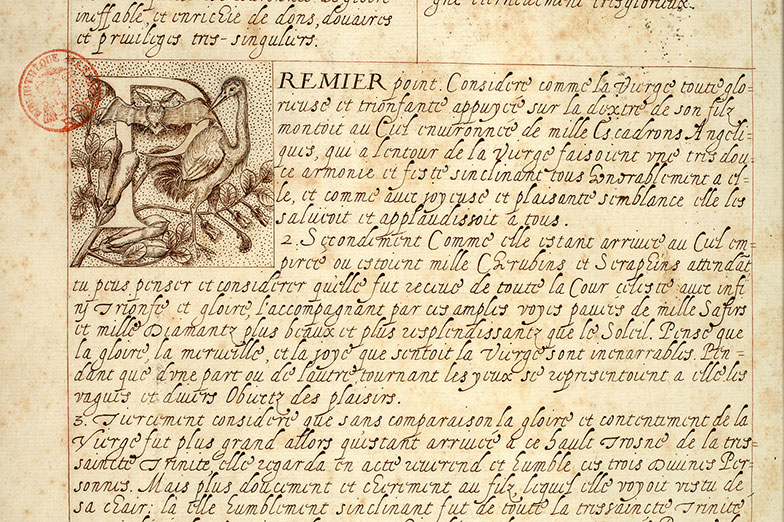 ineffable, et enrichie de dons, douaires
et privileges tres-singuliers.
gne eternellement tresglorieux.
PREMIER point. Considere comme la Vierge toute glo-
rieuse et trionfante appuyee sur la dextre de son filz
montoit au Ciel environnee de mille Escadrons Angeli-
ques, qui a lentour de la Vierge faisoient vne tres dou-
ce armonie et feste sinclinant tous honorablement a el-
le, et comme avec joyeuse et plaisante semblance elle les
saluoit et applaudissoit a tous.
2. Secondement Comme elle estant arrivee au Ciel em-
piree ou estoient mille Cherubins et Seraphins attendāt
tu peus penser et considerer quelle fut receue de toute la Cour celeste avec infi
nj Trionfe et gloire, laccompagnant par ces amples voyes pavees de mille Safirs
et mille Diamantz plus beaux et plus resplendissantz que le Soleil. Pense que
la gloire, la merveille, et la joye que sentoit la Vierge sont inenarrables. Pen-
dant que dvne part ou de lautre, tournant les yeux se representoient a elle les
vagues et divers Obiectz des plaisirs.
3. Tiercement considere que sans comparaison la gloire et contentement de la
Vierge fut plus grand allors questant arrivee a ce hault Trosne de la tres-
saincte Trinite, elle regarda en acte reverend et humble, ces trois Divines Per-
sonnes. Mais plus doucement et cherement au filz, lequel elle voyoit vestu de
sa chair; la elle humblement sinclinant fut de toute la tressaincte Trinite